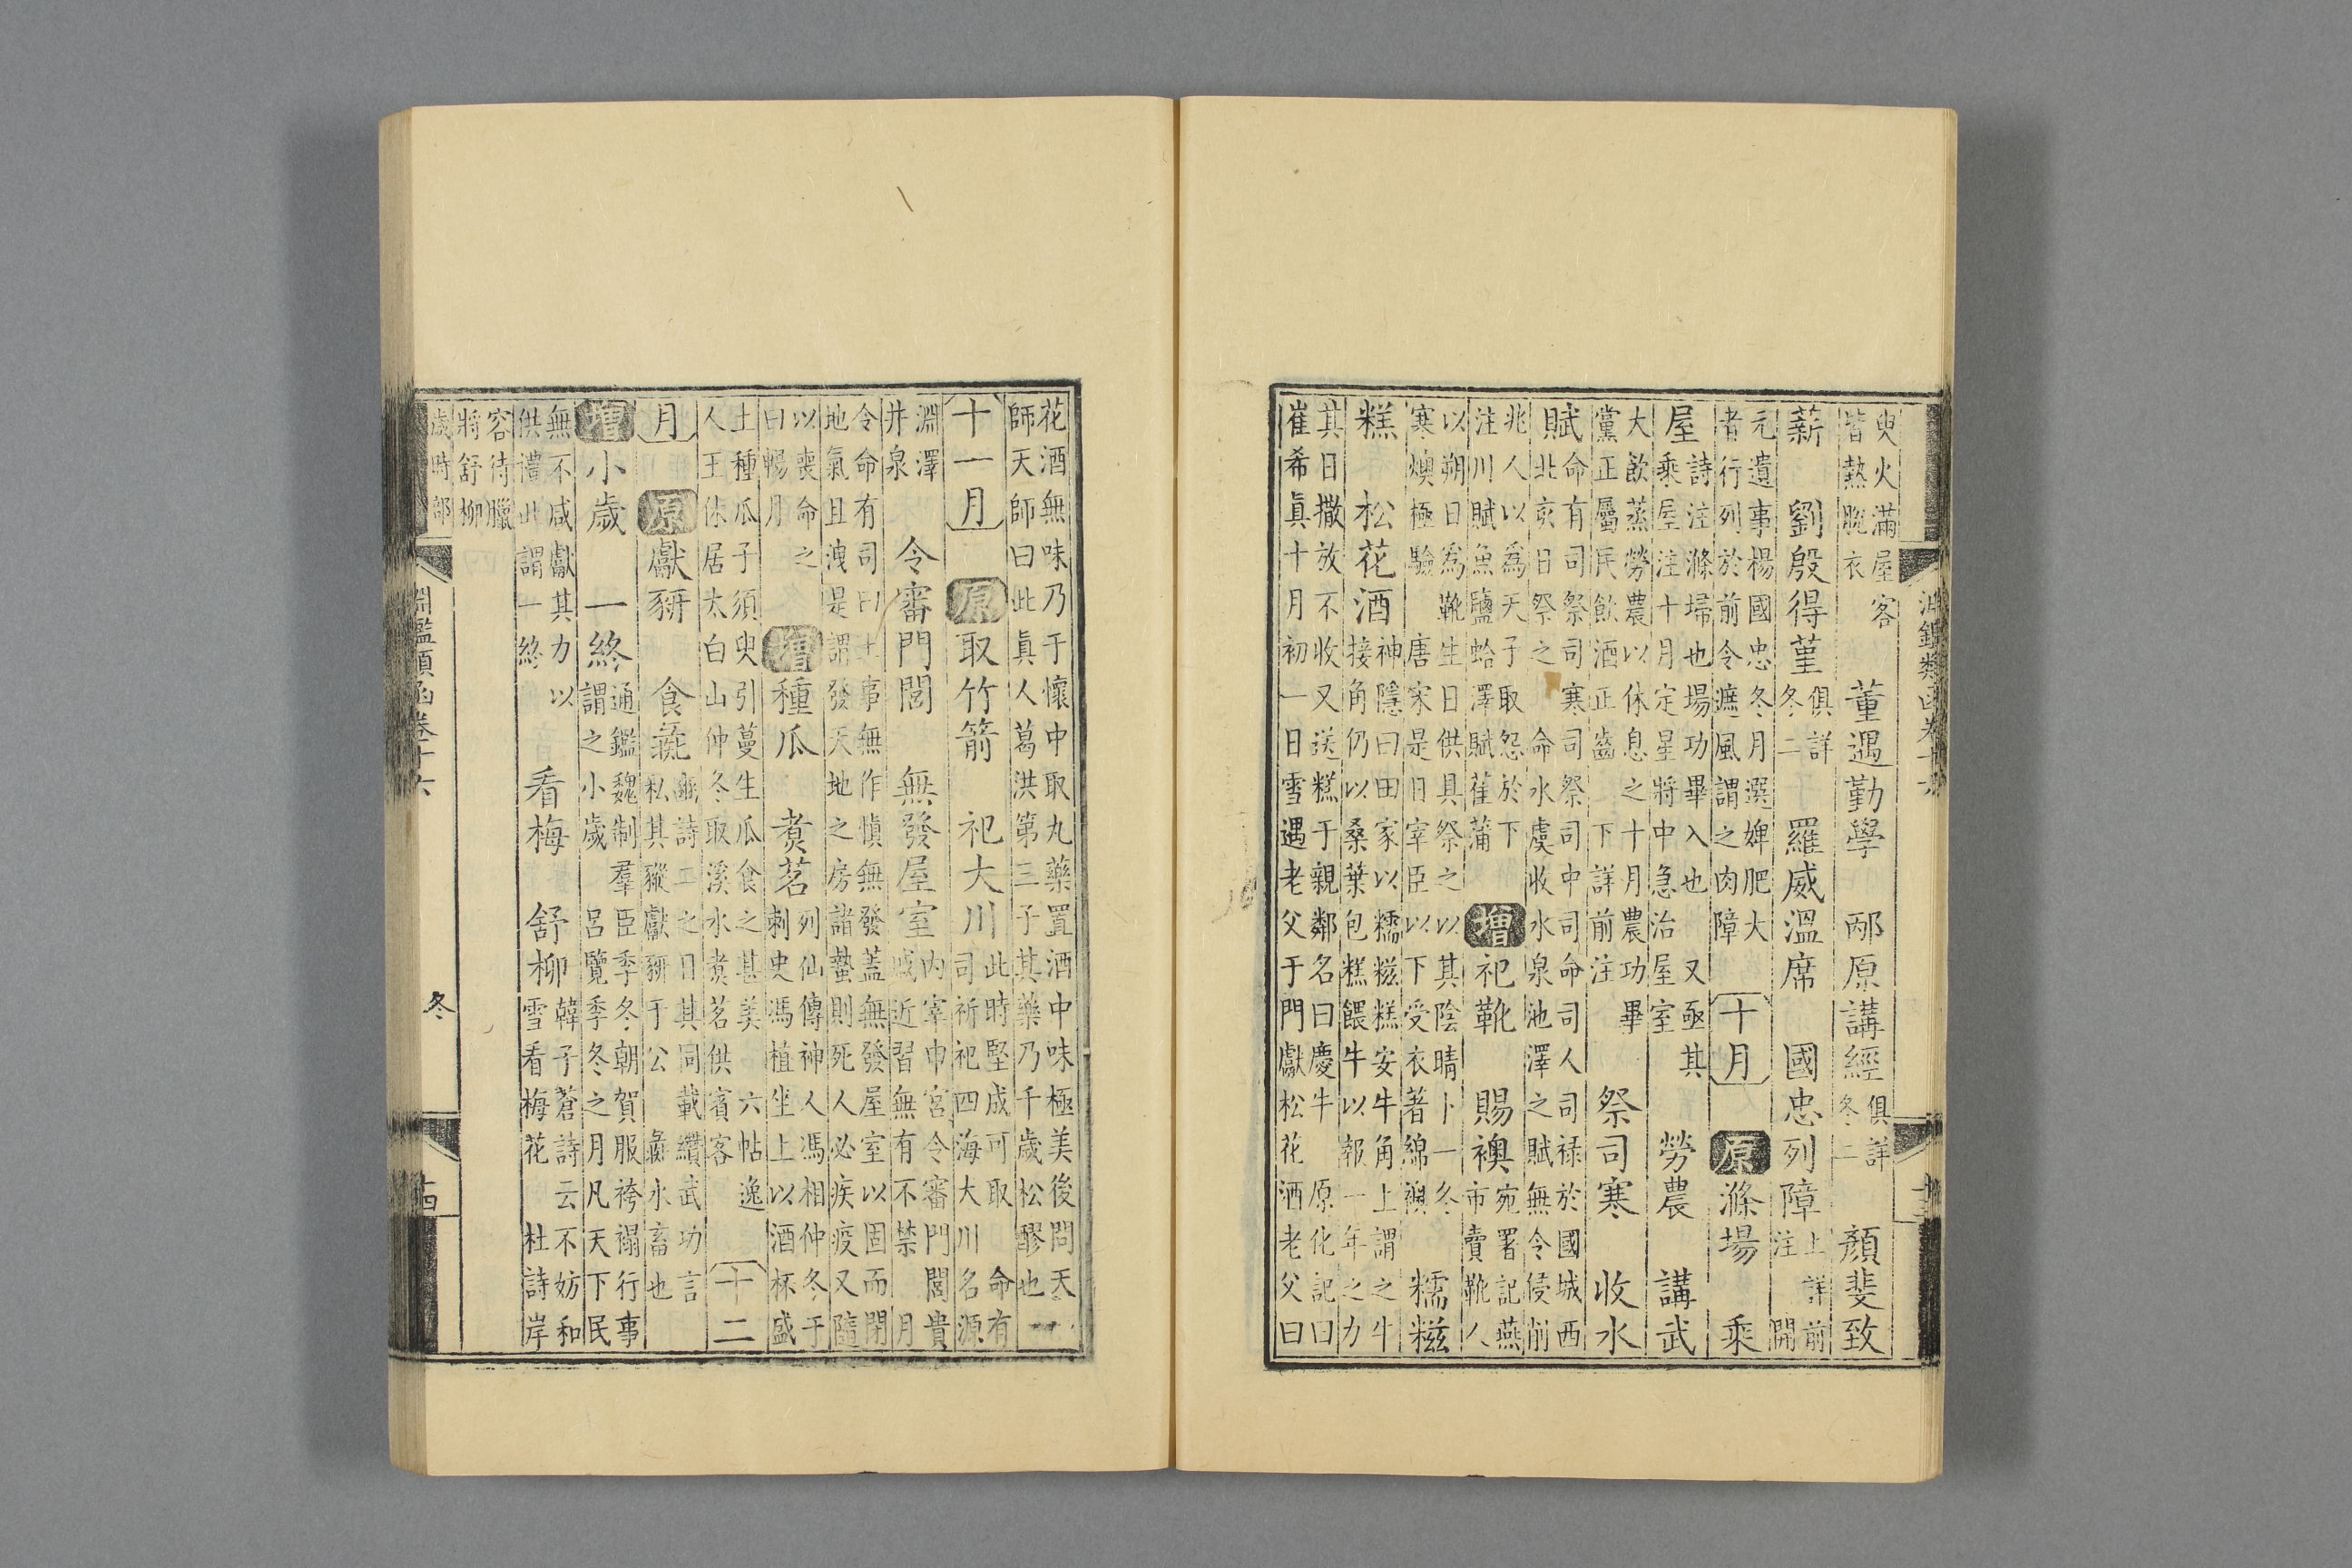 淵鑑類函卷十六
臾火滿屋客
皆熱脫衣
董遇勤學　邴原講經
俱詳
冬二
顏斐致
薪　劉殷得堇
俱詳
冬二
羅威溫席　國忠列障
上詳前
注　開
元遺事楊國忠冬月選婢肥大
者行列於前令遮風謂之肉障
十月　原　滌場　乘
屋
詩注滌埽也場功畢入也　又亟其
乘屋注十月定星將中急治屋室
勞農　講武
大飲蒸勞農以休息之十月農功畢
黨正屬民飲酒正齒　下詳前注
祭司寒　收水
賦
命有司祭司寒司祭司中司命司人司祿於國城西
北亥日祭之　命水虞收水泉池澤之賦無令侵削
兆人以爲天子取怨於下
注川賦魚鹽蛤澤賦萑蒲
增　祀靴　賜襖
宛署記燕
市賣靴人
以朔日爲靴生日供具祭之以其陰晴卜一冬
寒燠極驗　唐家是日宰臣以下受衣著綿襖
糯糍
糕　松花酒
神隱曰田家以糯糍糕安牛角上謂之牛
接角仍以桑葉包糕餵牛以報一年之力
其日撒放不收又送糕于親鄰名曰慶牛　原化記曰
崔希眞十月初一日雪遇老父于門獻松花酒老父曰
花酒無味乃于懷中取丸藥置酒中味極美後問天
師天師曰此眞人葛洪第三子其藥乃千歲松膠也
十一月　原　取竹箭　祀大川
此時堅成可取　命有
司祈祀四海大川名源
淵澤
井泉
令審門閭　無發屋室
內宰申宮令審門閭貴
戚近習無有不禁　月
令命有司曰土事無作慎無發蓋無發屋室以固而閉
地氣且洩是謂發天地之房諸蟄則死人必疾疫又隨
以喪命之
曰暢月
增　種瓜　煑茗
列仙傳神人馮相仲冬于
刺史馮植坐上以酒杯盛
土種瓜子須臾引蔓生瓜食之甚美　六帖逸
人王休居太白山仲冬取溪水煑茗供賓客
十二
月　原　獻豜　食
豳詩二之日其同載纘武功言
私其豵獻豜于公　水畜也
增　小歲　一終
通鑑魏制羣臣季冬朝賀服袴褶行事
謂之小歲　呂覽季冬之月凡天下民
無不咸獻其力以
供禮此謂一終
看梅　舒柳
韓子蒼詩云不妨和
雪看梅花　杜詩岸
容待臘
將舒柳
歲時部
淵鑑類函卷十六
冬
十四